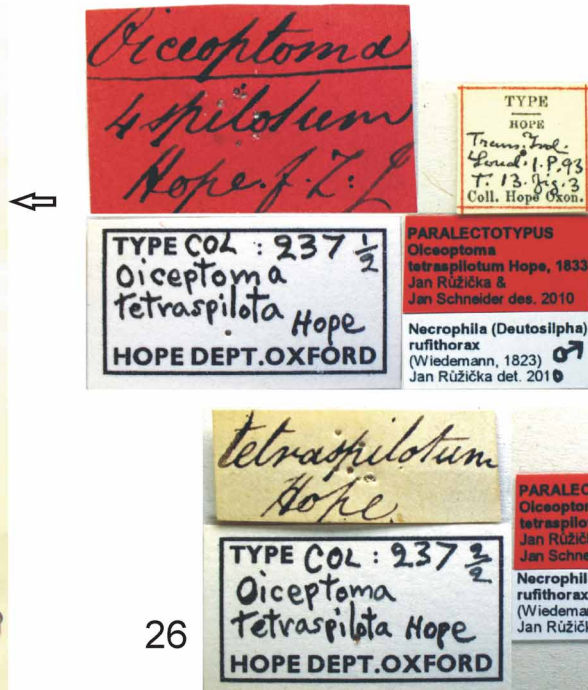 Oiceoptoma
4spilotum
Hope. f. Z: J
TYPE
HOPE
Trans. Zool.
Lond. I. P. 93
T. 13. fig. 3
Coll. Hope Oxon.
TYPE COL : 237 1/2
Oiceptoma
tetraspilota
Hope
HOPE DEPT.OXFORD
PARALECTOTYPUS
Oiceoptoma
tetraspilotum Hope, 1833
Jan Růžička &
Jan Schneider des. 2010
Necrophila (Deutosilpha)
rufithorax
(Wiedemann, 1823) ♂
Jan Růžička det. 2010
tetraspilotum
Hope
TYPE COL : 237 2/2
Oiceptoma
tetraspilota Hope
HOPE DEPT.OXFORD
PARALEC
Oiceoptom
tetraspilo
Jan Růžič
Jan Schne
Necrophil
rufithorax
(Wiedema
Jan Růžičk
26